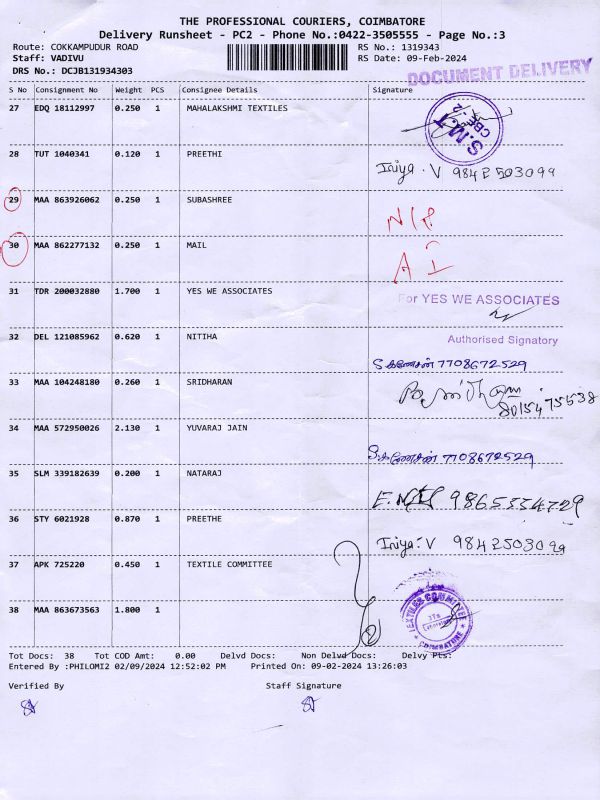 THE PROFESSIONAL COURIERS, COIMBATORE
Delivery Runsheet - PC2 - Phone No.:0422-3505555 - Page No.:3
Route: COKKAMPUDUR ROAD RS No.: 1319343
Staff: VADIVU RS Date: 09-Feb-2024
DRS No.: DCJB131934303
DOCUMENT DELIVERY
S No Consignment No Weight PCS Consignee Details Signature
27 EDQ 18112997 0.250 1 MAHALAKSHMI TEXTILES
S.M.T CBE
28 TUT 1040341 0.120 1 PREETHI
Iniya . V 9842503099
29 MAA 863926062 0.250 1 SUBASHREE
30 MAA 862277132 0.250 1 MAIL
31 TDR 200032880 1.700 1 YES WE ASSOCIATES
For YES WE ASSOCIATES
32 DEL 121085962 0.620 1 NITIHA
Authorised Signatory
S கணேசன் 7708672529
33 MAA 104248180 0.260 1 SRIDHARAN
8015475538
34 MAA 572950026 2.130 1 YUVARAJ JAIN
S.கணேசன் 7708672529
35 SLM 339182639 0.200 1 NATARAJ
36 STY 6021928 0.870 1 PREETHE
Iniya . V 9842503099
37 APK 725220 0.450 1 TEXTILE COMMITTEE
38 MAA 863673563 1.800 1
TEXTILES COMMITTEE
COIMBATORE
Tot Docs: 38 Tot COD Amt: 0.00 Delvd Docs: Non Delvd Docs: Delvy Pts:
Entered By :PHILOMI2 02/09/2024 12:52:02 PM Printed On: 09-02-2024 13:26:03
Verified By Staff Signature